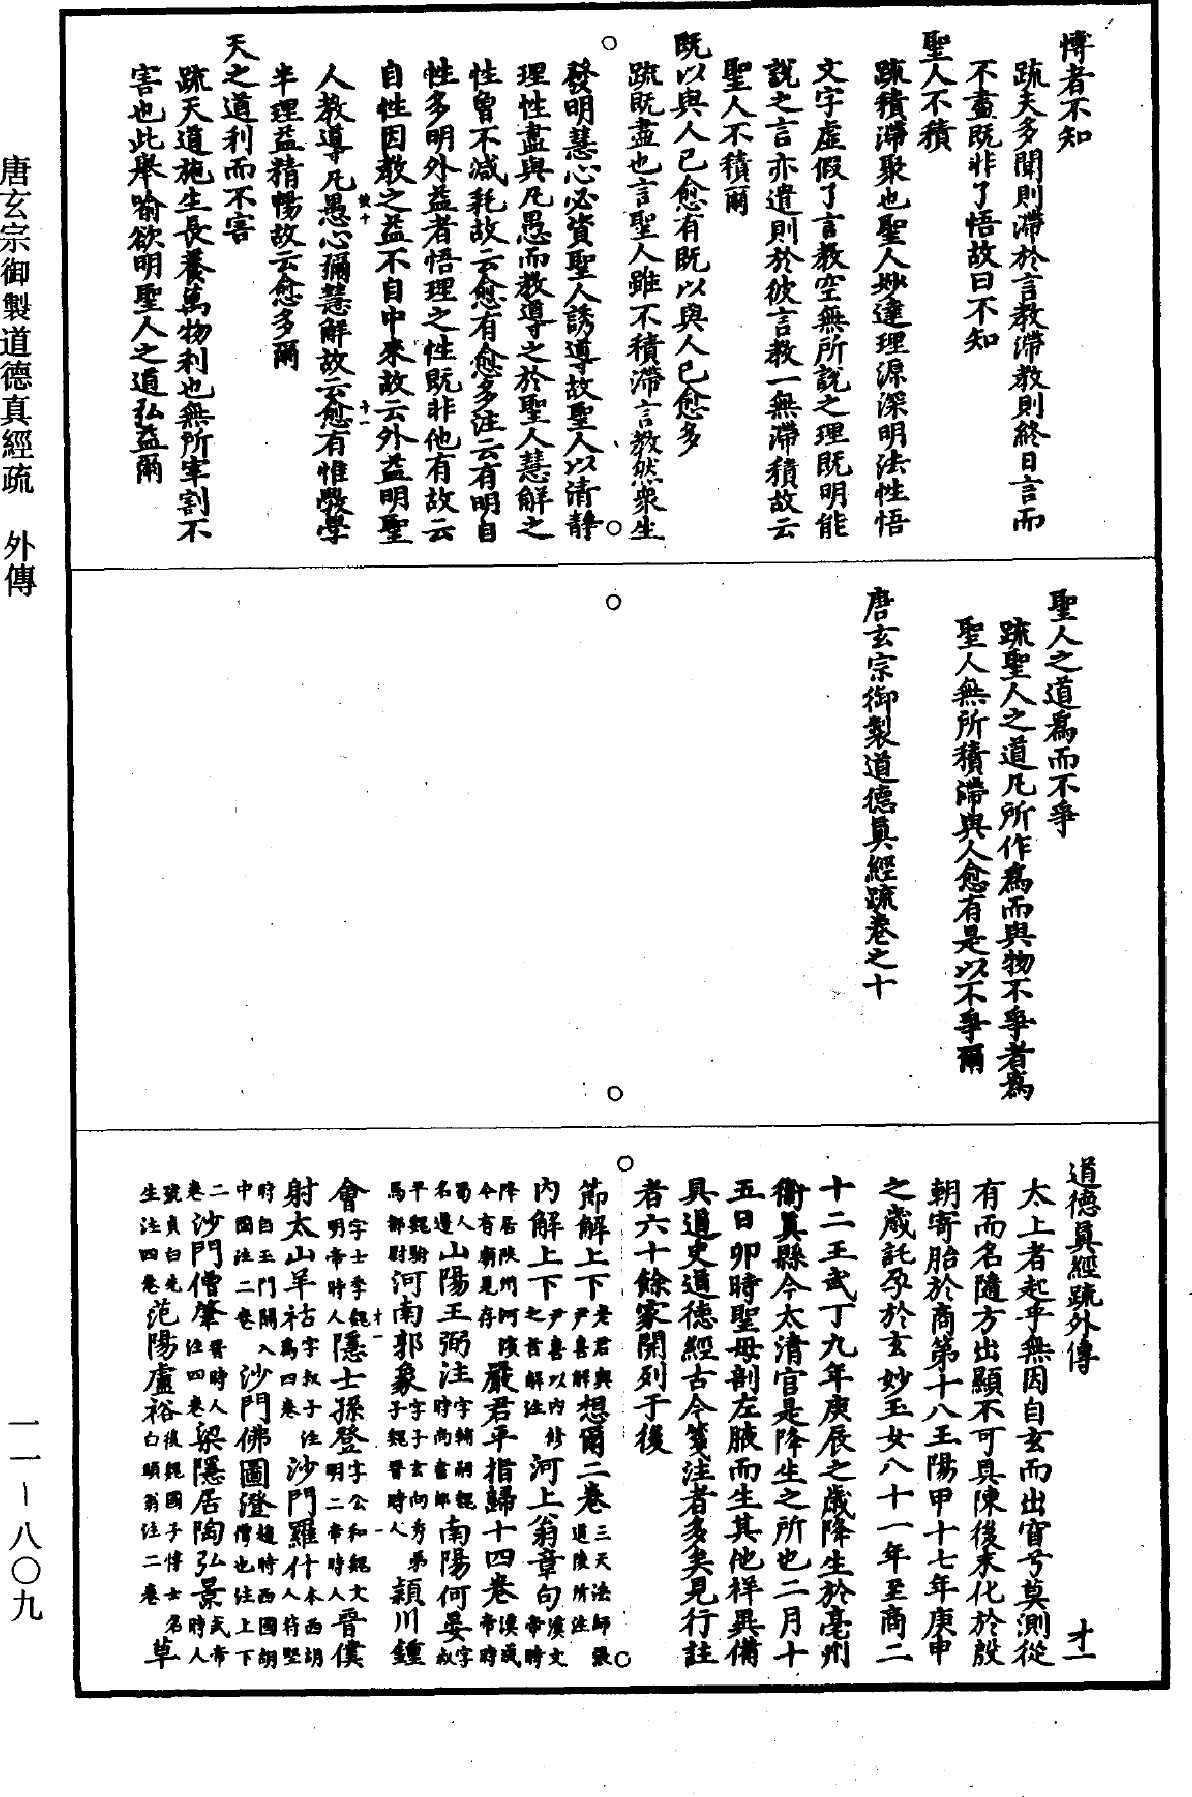 博者不知
疏夫多聞則滯於言教滯教則終日言而
不盡既非了悟故曰不知
聖人不積
疏積滯聚也聖人妙達理源深明法性悟
文字虛假了言教空無所說之理既明能
說之言亦遣則於彼言教一無滯積故云
聖人不積爾
既以與人己愈有既以與人己愈多
疏既盡也言聖人雖不積滯言教然衆生
發明慧心必資聖人誘導故聖人以清静
理性盡與凡愚而教導之於聖人慧解之
性曾不減耗故云愈有愈多注云有明自
性多明外益者悟理之性既非他有故云
自性因教之益不自中來故云外益明聖
人教導凡愚心彌慧解故云愈有惟斆學
半理益精暢故云愈多爾
天之道利而不害
疏天道施生長養萬物利也無所宰割不
害也此舉喻欲明聖人之道弘益爾
聖人之道爲而不爭
疏聖人之道凡所作爲而與物不爭者爲
聖人無所積滯與人愈有是以不爭爾
唐玄宗御製道德眞經疏卷之十
道德眞經疏外傳 才一
太上者起乎無因自玄而出窅兮莫測從
有而名隨方出顯不可具陳後來化於殷
朝寄胎於商第十八王陽甲十七年庚申
之歲託孕於玄妙玉女八十一年至商二
十二王武丁九年庚辰之歲降生於亳州
衞眞縣今太清宫是降生之所也二月十
五日卯時聖母剖左腋而生其他祥異備
具道史道德經古今箋注者多矣見行註
者六十餘家開列于後
節解上下老君與尹喜解想爾二卷三天法師張道陵所注
内解上下尹喜以内修之旨解注河上翁章句漢文帝時
降居陝州河濱今有廟見存嚴君平指歸十四卷漢成帝時
蜀人名遵山陽王弼注字輔嗣魏時尚書郎南陽何晏字叔
平魏駙馬都尉河南郭象字子玄向秀弟子魏晉時人穎川鍾
會字士季魏明帝時人隱士孫登字公和魏文明二帝時人晉僕
射太山羊祜字叔子注爲四卷沙門羅什本西胡人符堅
時自玉門關入中國注二卷沙門佛圖澄趙時西國胡僧也注上下
二卷沙門僧肇晉時人注四卷梁隱居陶弘景武帝時人
號貞白先生注四卷范陽盧裕後魏國子博士名白頭翁注二卷草
唐玄宗御製道德真經疏　外傳
一一—八〇九